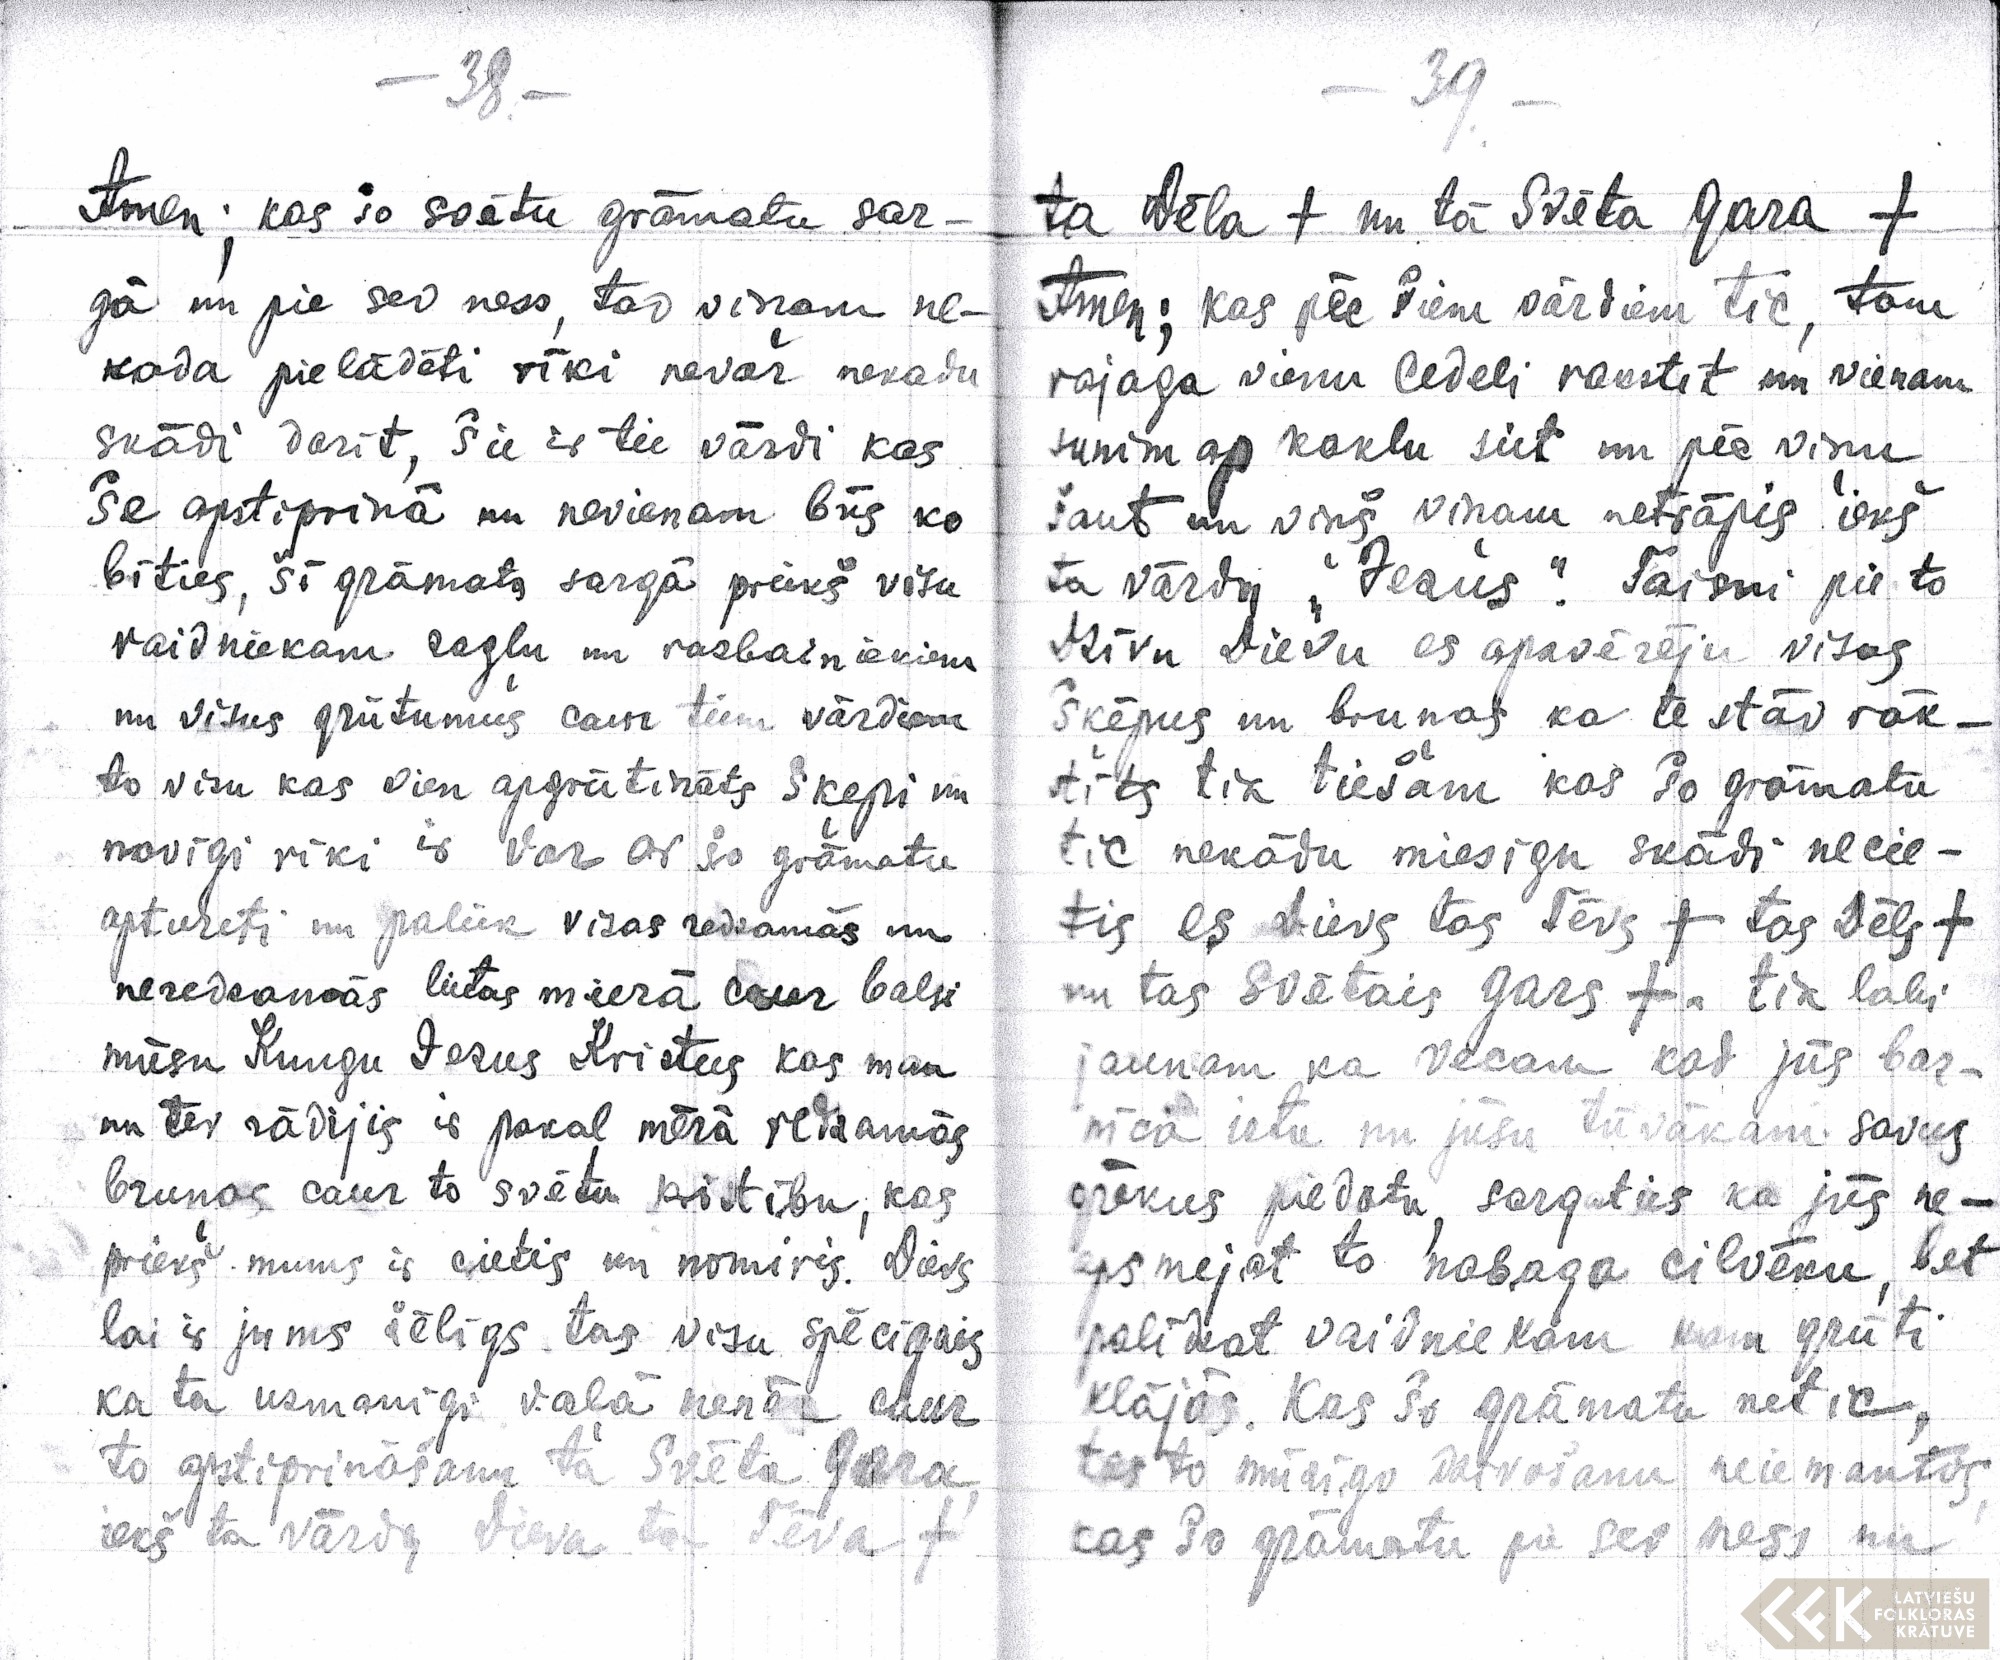 — 38. —
Amen; kas šo svētu grāmatu sar-
gā un pie sev ness, tad viņam ne-
kada pielādēti rīki nevar nekadu
skādi darit, šie ir tie vārdi kas
še apstiprinā un nevienam būs ko
bīties, šī grāmata sargā priekš visu
vaidniekam zaglu un razbainiekiem
un visus grūtumus caur tiem vārdiem
to visu kas vien apgrūtināts škepi un
navigi rīki ir var ar šo grāmatu
aptureti un paliek visas redzamās un
neredzamās lietas mierā caur balsi
mūsu Kungu Jezus Kristus kas man
un tev rādijis ir pakal mērā redzamās
brunas caur to svētu kristību, kas
priekš mums ir cietis un nomiris. Dievs
lai ir jums žēligs tas visu spēcigais
ka ta uzmanigi vaļā nenāk caur
to apstiprināšanu tā Svēta Gara,
iekš ta vārda Dieva ta Tēva †
— 39. —
ta Dēla † un tā Svēta Gara †
Amen; kas pēc šiem vārdiem tic, tam
vajaga vienu cedeli rakstit un vienam
sunim ap kaklu siet un pēc viņu
šaut un viņš viņam netrāpis iekš
ta vārda „Jezus”. Taisni pie to
Dzīvu Dievu es apzvērēju visas
Šķēpus un brunas ka te stāv rak-
stīts tik tiešām kas šo grāmatu
tic nekādu miesigu skādi necie-
tis es Dievs tas Tēvs † tas Dēls †
un tas Svētais Gars †. tik labi
jaunam ka vecam kad jūs baz-
nīcā ietu un jūsu tūvākam savus
grēkus piedotu, sargaties ka jūs ne-
apsmejat to nabaga cilvēku, bet
palidzat vaidniekam kam grūti
klājās. Kas šo grāmatu netic,
tas to mūžigo dzivošanu neiemantos,
kas šo grāmatu pie sev ness un
LATVIEŠU
FOLKLORAS
KRĀTUVE